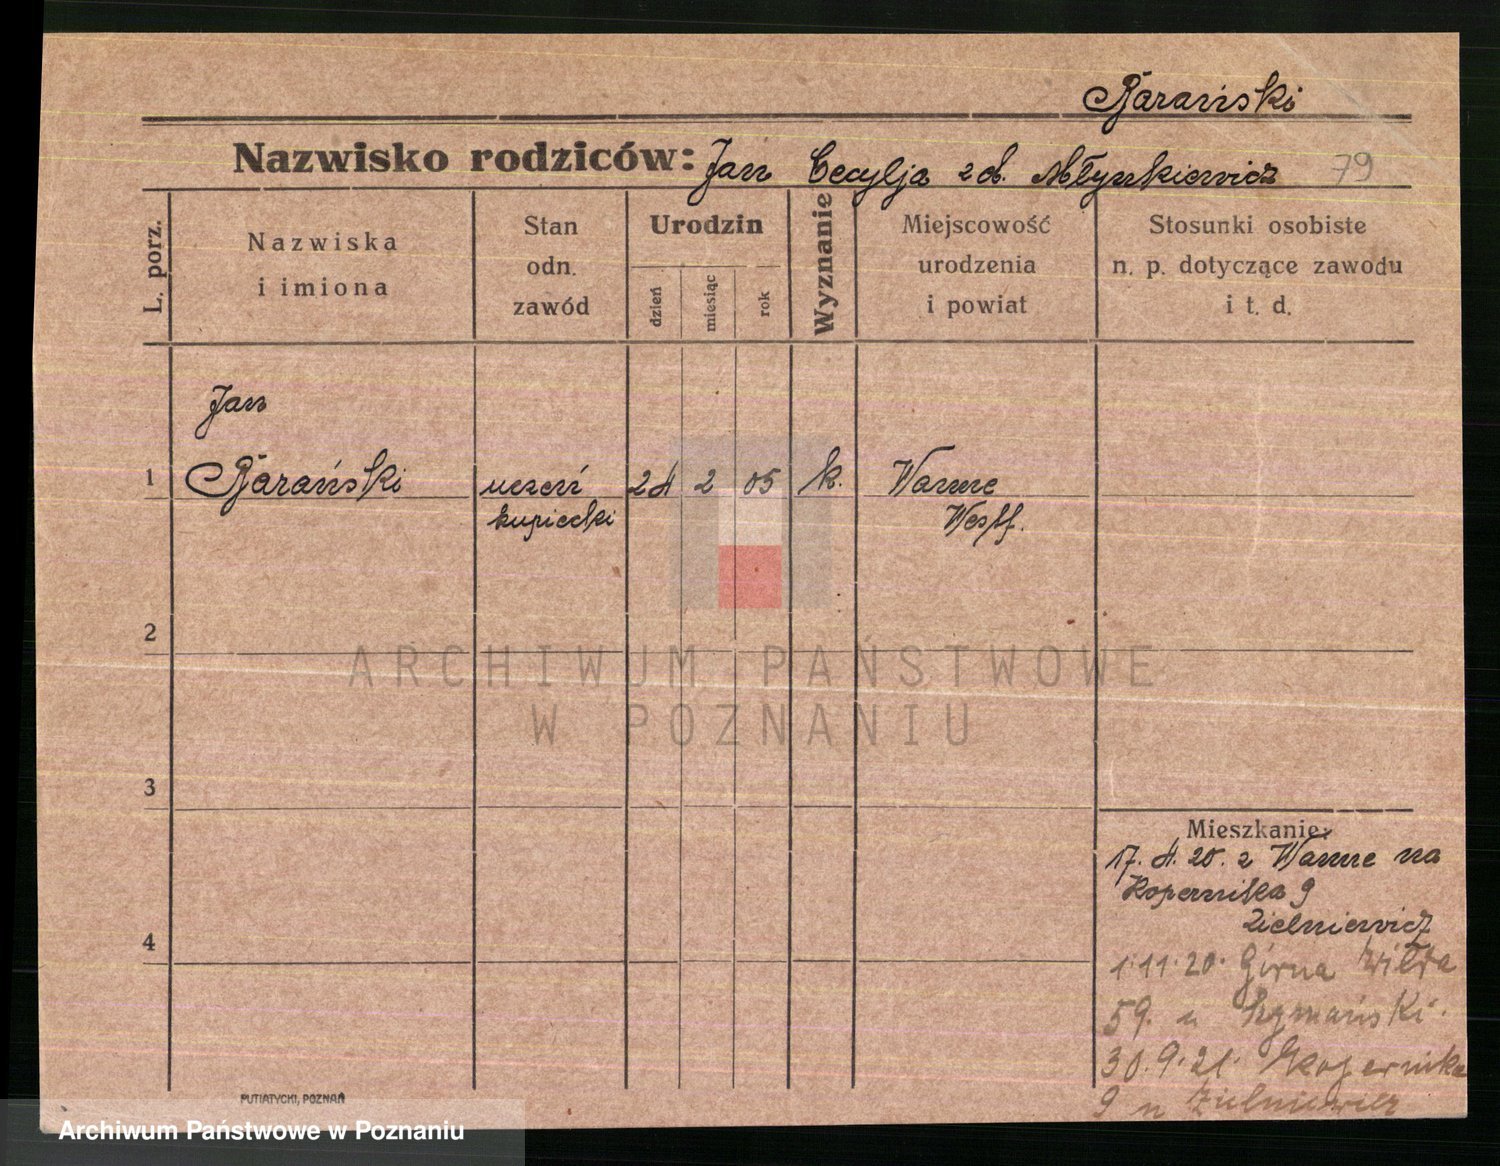 Barański
Nazwisko rodziców: Jan Cecylja zd. Młynkiewicz 79
L. porz.
Nazwiska
i imiona
Stan
odn.
zawód
Urodzin
dzień
miesiąc
rok
Wyznanie
Miejscowość
urodzenia
i powiat
Stosunki osobiste
n. p. dotyczące zawodu
i t. d.
Jan
1 Barański uczeń 24 2 05 k. Wanne
kupiecki Westf.
2
ARCHIWUM PAŃSTWOWE
W POZNANIU
3
Mieszkanie:
17. 4. 20. z Wanne na
Kopernika 9
Zielniewicz
4
1.11.20. Górna Wilda
59. u Szymański.
30.9.21. Kopernika
9 u Zielniewicz
PUTIATYCKI, POZNAŃ
Archiwum Państwowe w Poznaniu